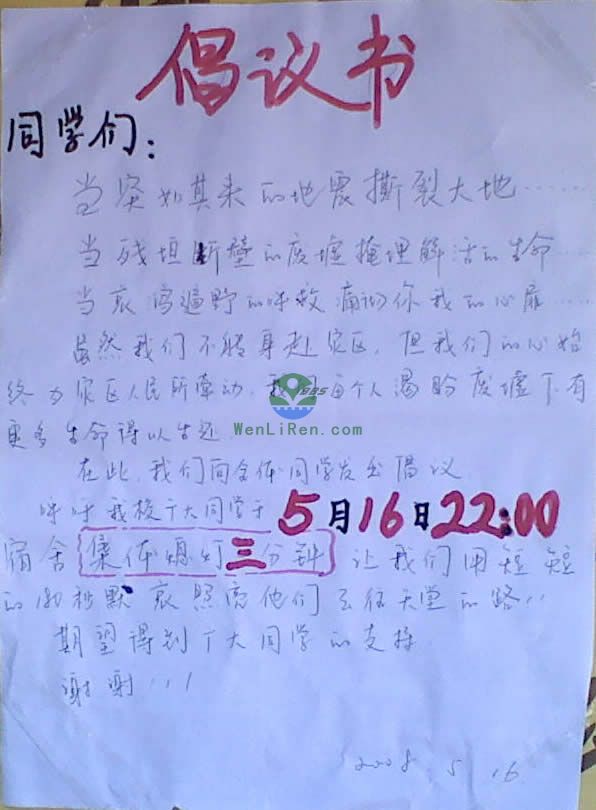 倡议书
同学们:
当突如其来的地震撕裂大地……
当残垣断壁的废墟掩埋鲜活的生命…
当哀鸿遍野的呼救痛彻你我的心扉……
虽然我们不能身赴灾区,但我们的心始
终为灾区人民所牵动,我们每个人渴盼废墟下有
更多生命得以生还
BBS
WenLiRen.com
在此,我们向全体同学发出倡议
呼吁我校广大同学于5月16日22:00
宿舍集体熄灯三分钟 让我们用短短
的 秒默哀照亮他们去往天堂的路!!
期望得到广大同学的支持
谢谢!!!
2008.5.16